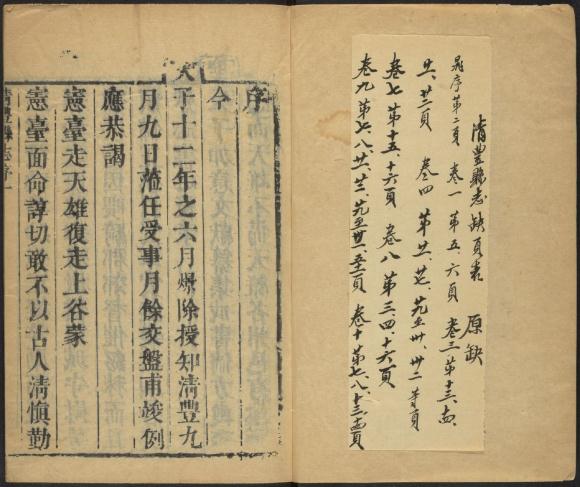 清豐縣志缺頁表 原缺
晁序第二頁 卷一 第五、六頁 卷三 第十三、十四、
廿、廿一頁 卷四 第廿、廿七、廿九至卅、卅二等頁
卷七 第十五、十六頁 卷八 第三、四、十六頁
卷九 第七、八、廿、廿三、廿九至卅、五十一頁 卷十 第七、八、十三、十四頁
序
今
天子十二年之六月爆除授知清豐九
月九日蒞任受事月餘交盤甫竣例
應恭謁
憲臺走天雄復走上谷蒙
憲臺面命諄切敢不以古人清慎勤
清豐縣志序一